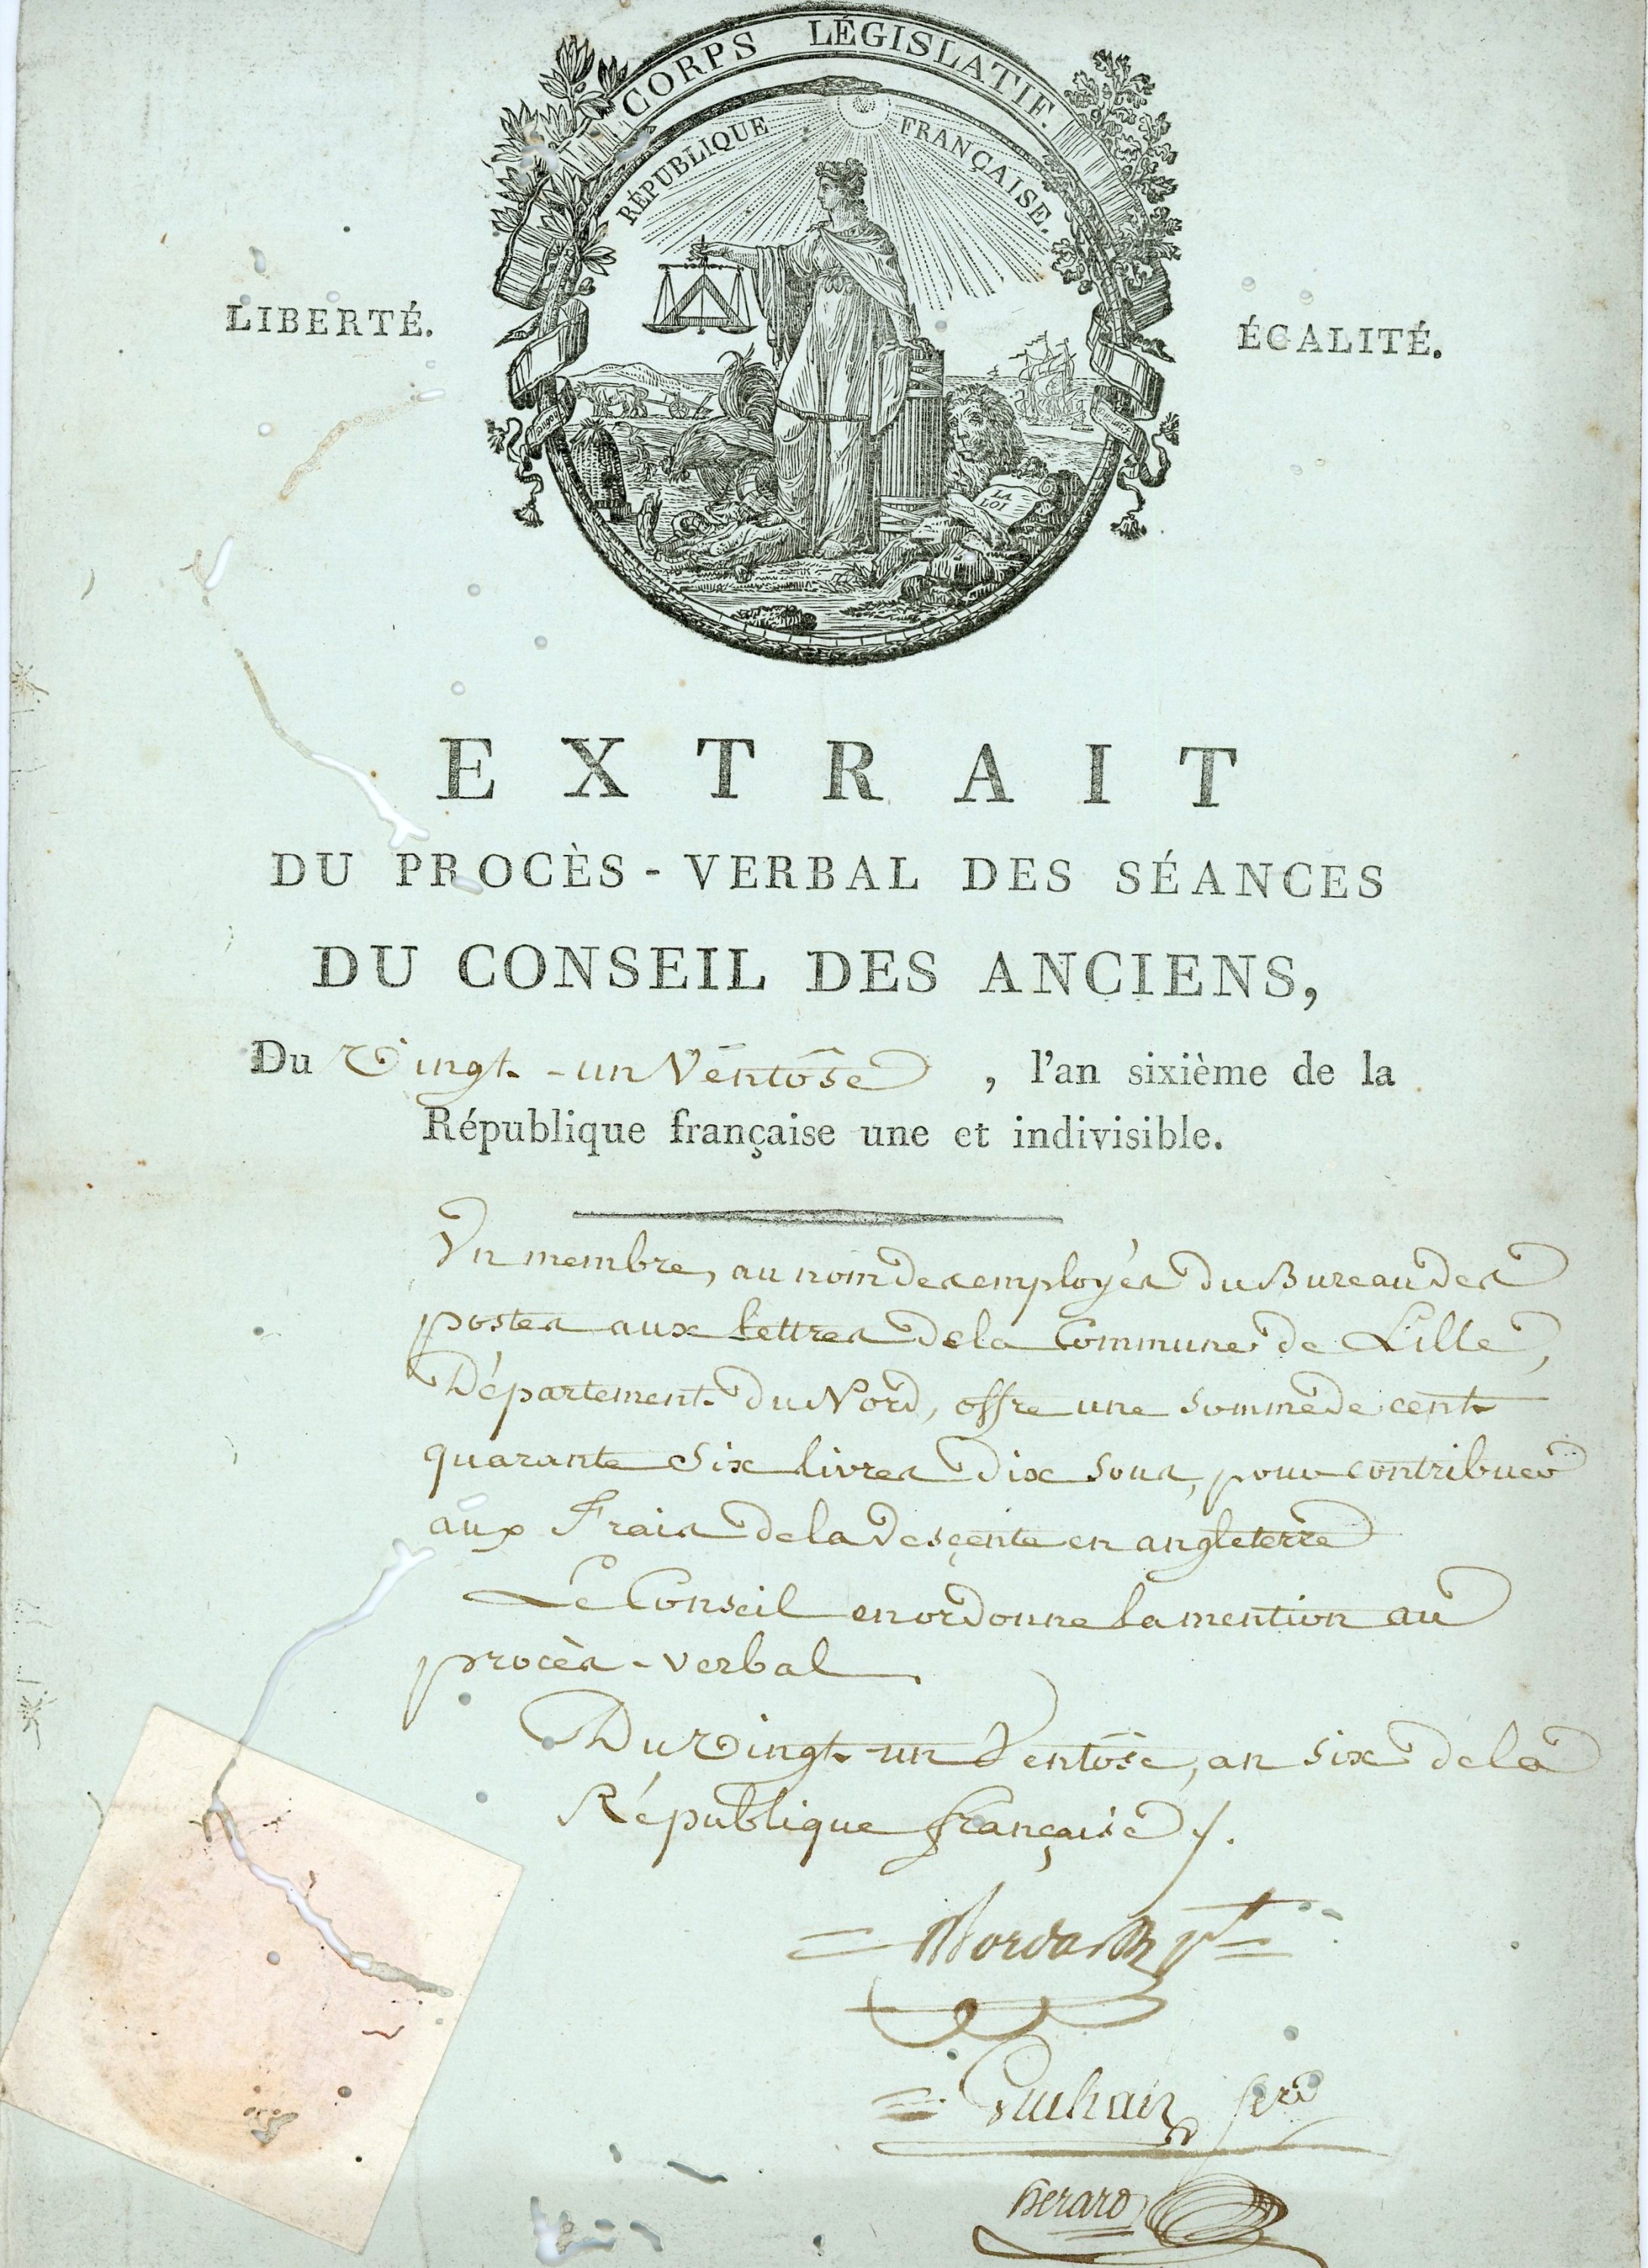 CORPS LÉGISLATIF.
RÉPUBLIQUE FRANÇAISE.
LIBERTÉ. ÉGALITÉ.
LA
LOI
EXTRAIT
DU PROCÈS-VERBAL DES SÉANCES
DU CONSEIL DES ANCIENS,
Du Vingt-un Ventôse, l'an sixième de la
République française une et indivisible.
Un membre, au nom des employés du Bureau des
postes aux lettres de la Commune de Lille,
Département du Nord, offre une somme de cent
quarante six livres dix sous, pour contribuer
aux Frais de la Desçente en angleterre
Le Conseil en ordonne la mention au
procès-verbal
Du Vingt-un Ventôse, an six de la
République française /.
Bérard